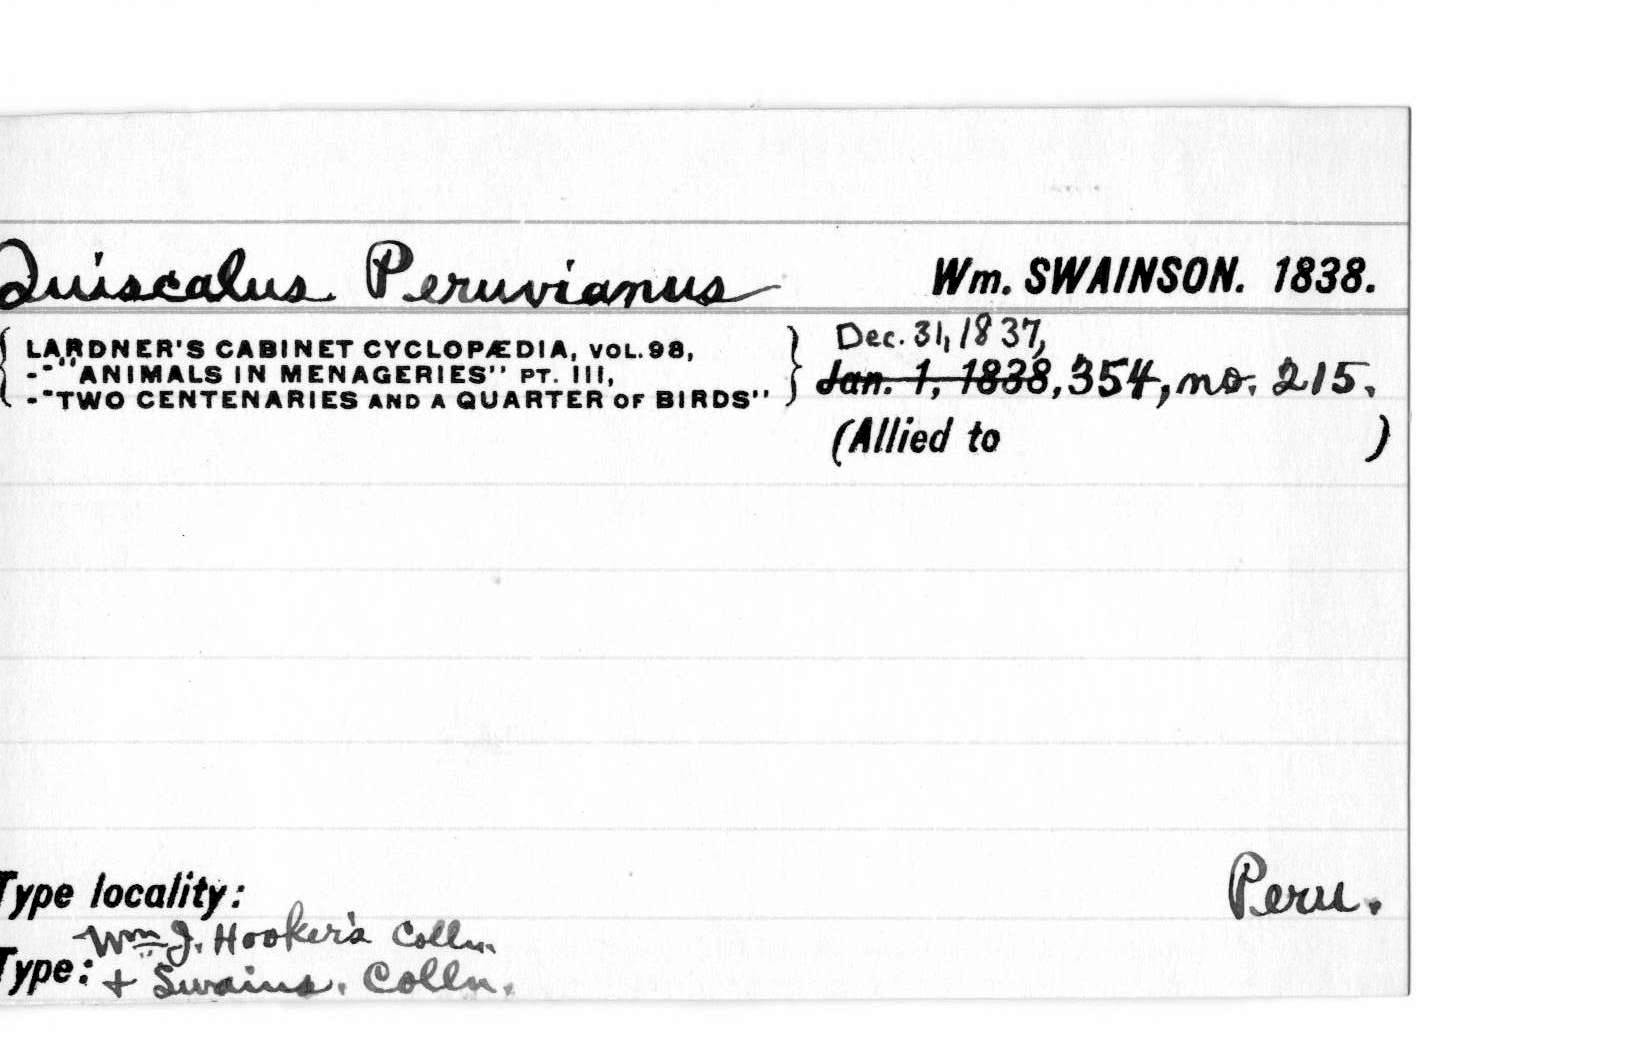 Quiscalus Peruvianus Wm. SWAINSON. 1838.
Dec. 31, 1837,
{ LARDNER'S CABINET CYCLOPÆDIA, VOL. 98, }
--"ANIMALS IN MENAGERIES" PT. III, Jan. 1, 1838, 354, no. 215.
--"TWO CENTENARIES AND A QUARTER OF BIRDS"
(Allied to )
Type locality: Peru.
Wm J. Hooker's Colln.
Type: + Swains. Colln.